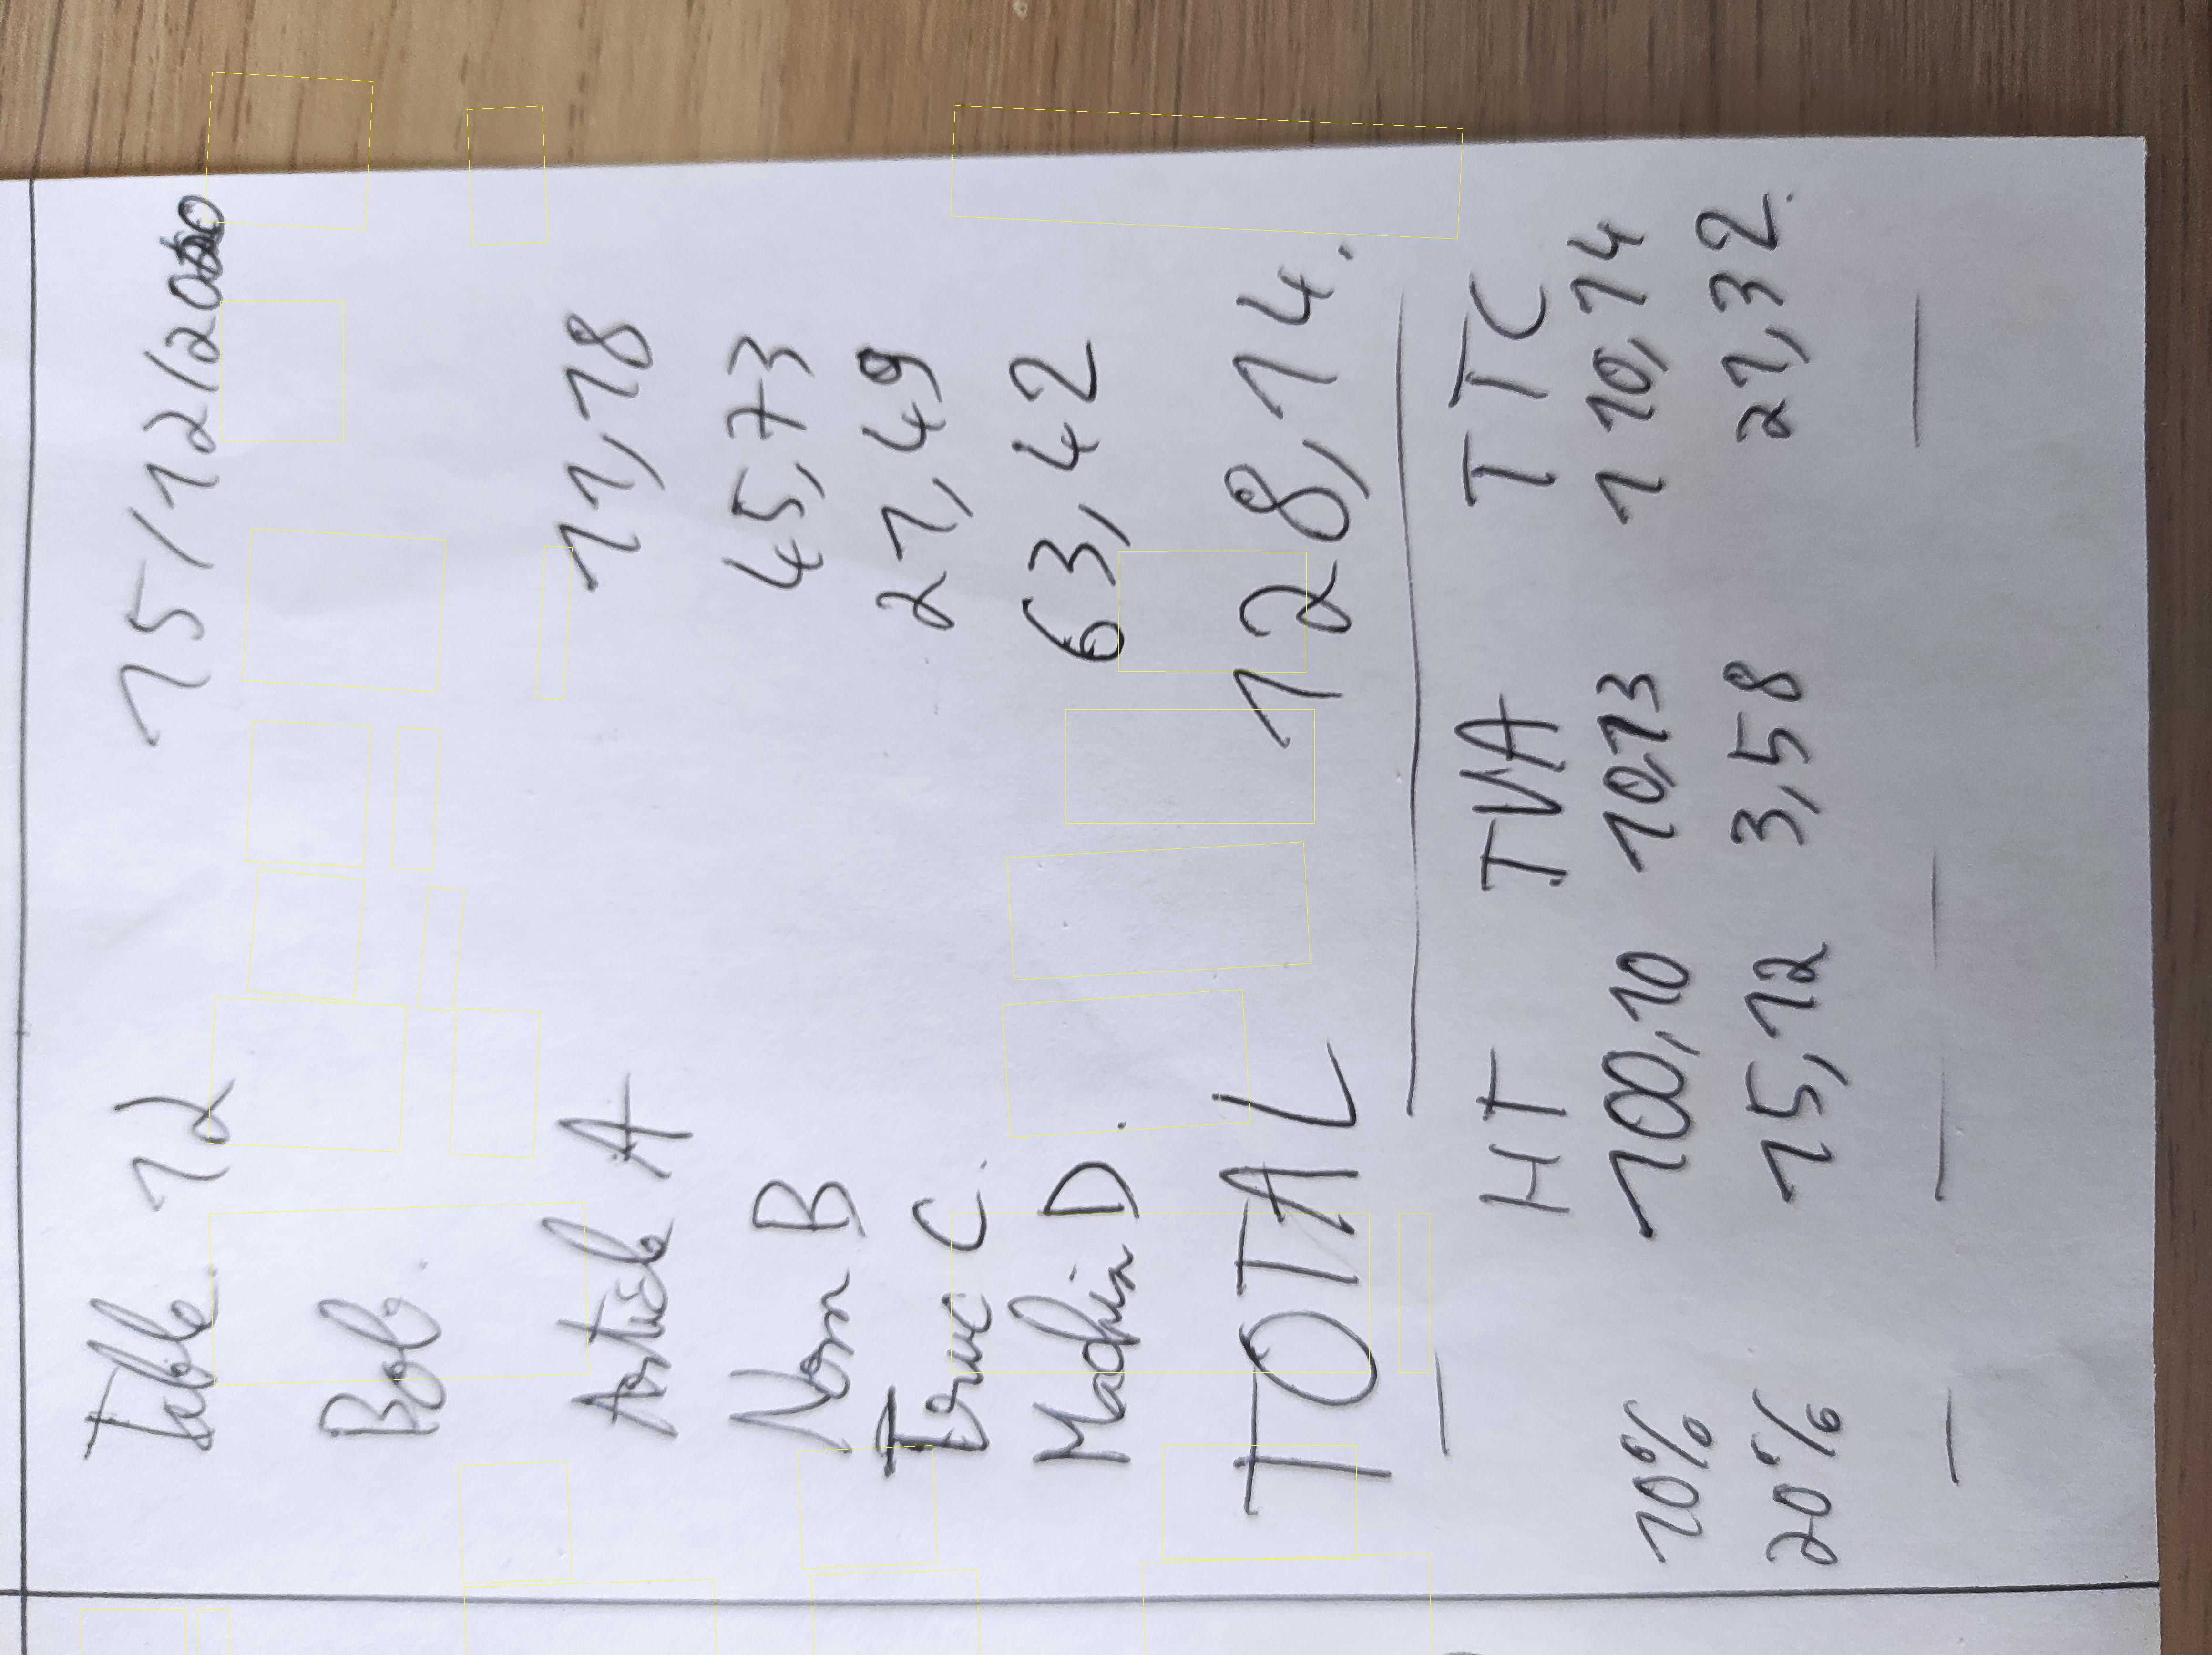 Table 12 15/12/2000
Bob.
Article A 11,18
Nom B 45,73
Truc C. 21,49
Machin D. 63,42
TOTAL 128,14.
HT TVA TTC
10% 100,10 10,13 110,14
20% 15,12 3,58 21,32.